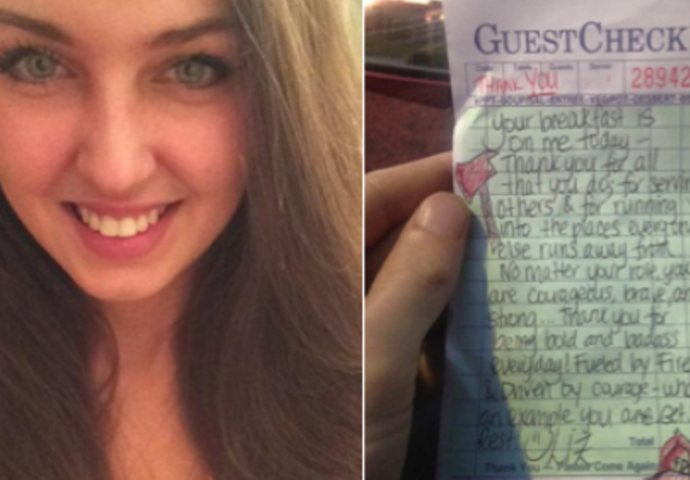 GUESTCHECK
Date Table Guests Server
THANK YOU 28942
your breakfast is
on me today -
Thank you for all
that you do; for servin
others & for running
into the places everyon
else runs away from.
No matter your role, you
are courageous, brave, an
strong... Thank you for
being bold and badass
everyday! Fueled by Fire
& Driven by courage - wh
an example you are. Get
Rest Liz
Total
Thank You - Please Come Again